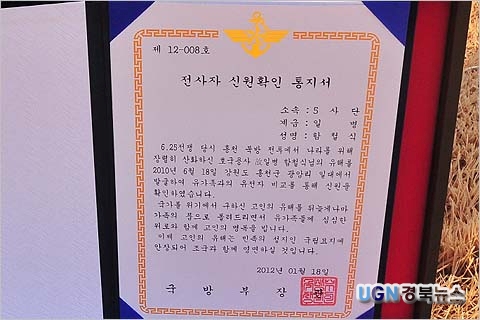 제 12-008호
전사자 신원확인 통지서
소속 : 5 사 단
계급 : 일 병
성명 : 함 협 식
6.25전쟁 당시 홍천 북방 전투에서 나라를 위해
장렬히 산화하신 호국용사 故일병 함협식님의 유해를
2010년 6월 18일 강원도 홍천군 광암리 일대에서
발굴하여 유가족과의 유전자 비교를 통해 신원을
확인하였습니다.
국가를 위기에서 구하신 고인의 유해를 뒤늦게나마
가족의 품으로 돌려드리면서 유가족들께 심심한
위로와 함께 고인의 명복을 빕니다.
이제 고인의 유해는 민족의 성지인 국립묘지에
안장되어 조국과 함께 영면하실 것입니다.
2012년 01월 18일
국 방 부 장 관
UGN경북뉴스